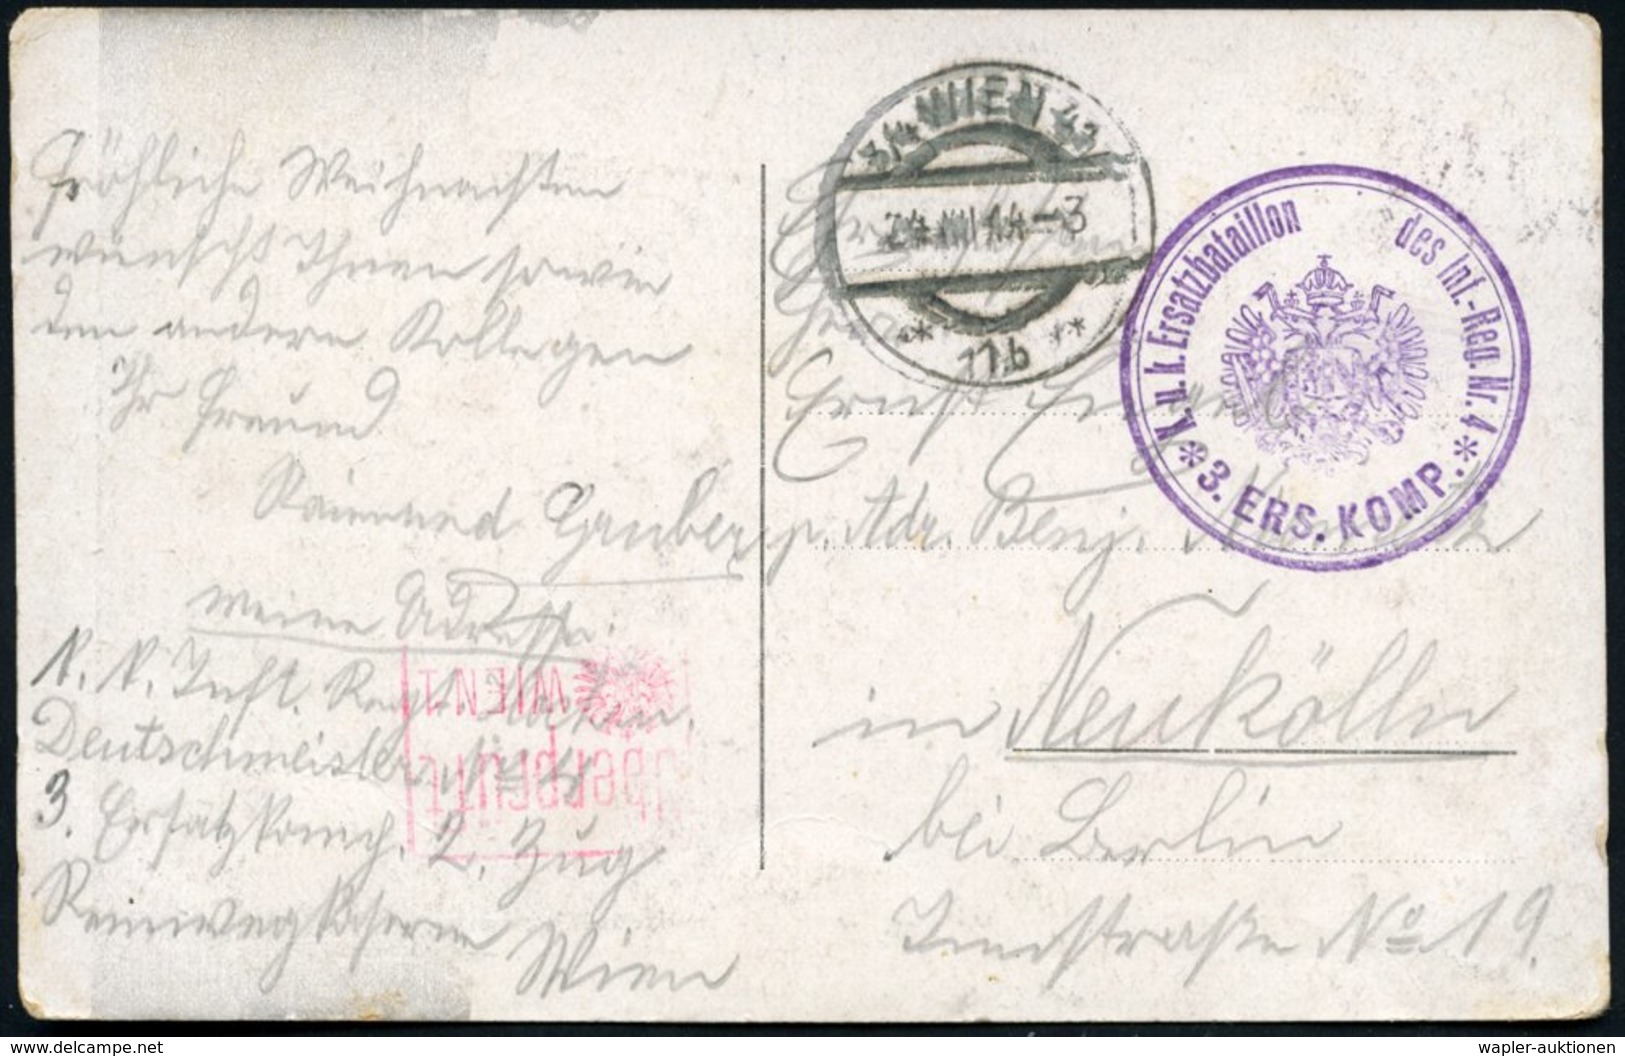 Fröhliche Weihnachten
wünscht Ihnen sowie
den andern Kollegen
Ihr Freund
Gruber
meine Adresse.
K. K. Inft. Regt.
Deutschmeister No 4
3. Ersatzkomp. 2. Zug
Rennwegkaserne
Wien
überprüft
WIEN 1
3/4 WIEN 42
24.XII.14-3
** 11b **
K. u. k. Ersatzbataillon des Inf.-Reg. Nr. 4
* 3. ERS. KOMP. *
Herrn
Ernst
p. Adr. Benj.
in Neukölln
bei Berlin
Innstraße No 19.
www.delcampe.net
wapler-auktionen